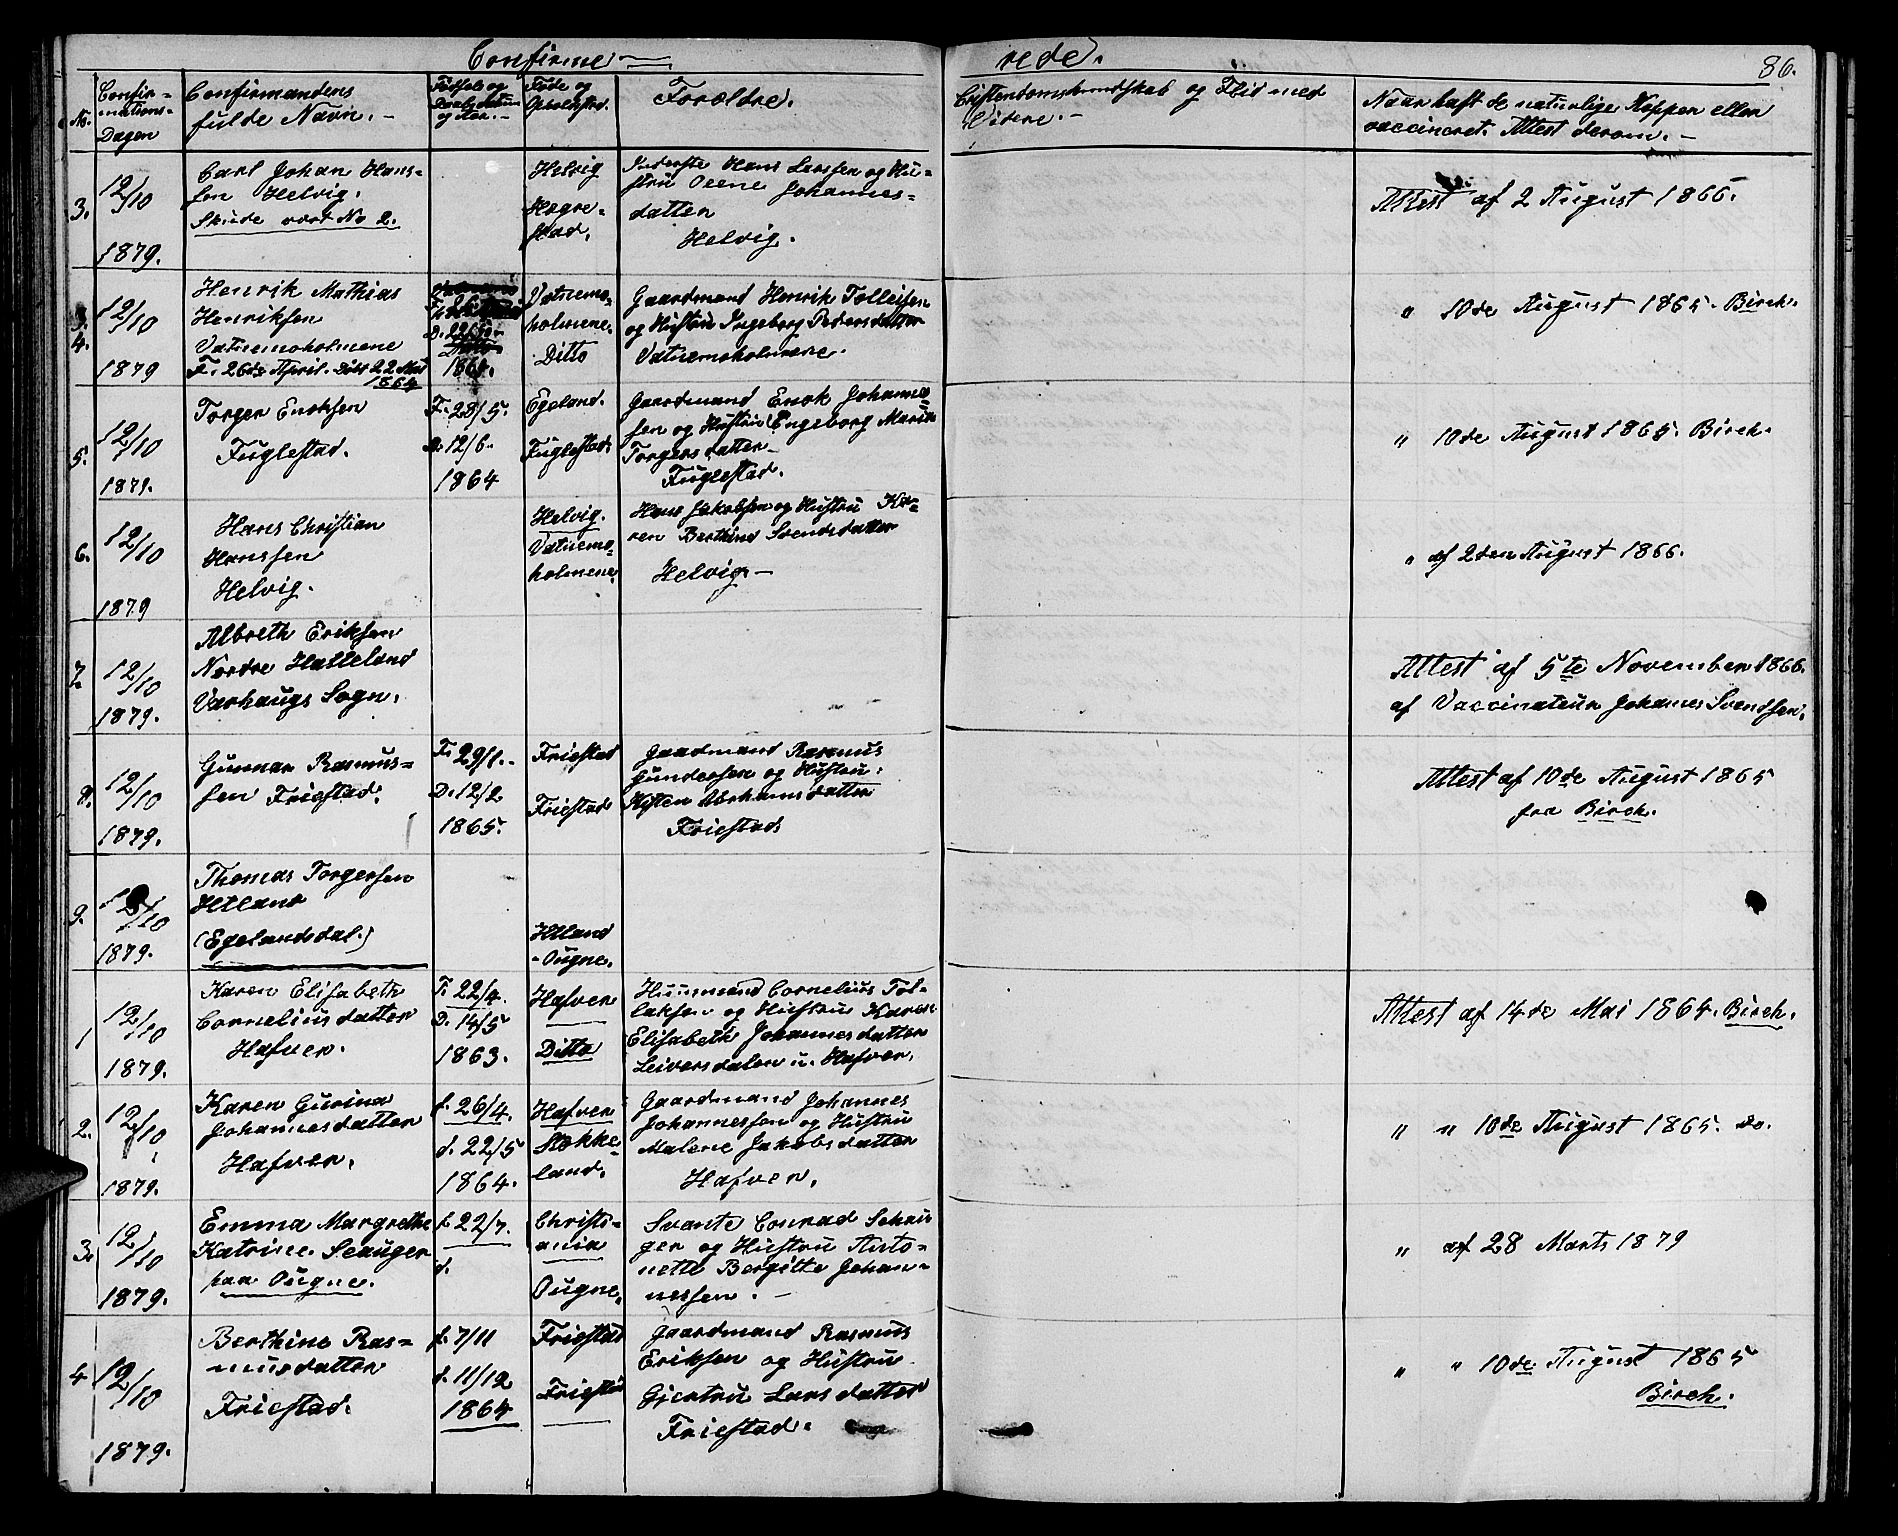 Confirme-
rede.
86.
No.
Confir-
mations-
Dagen
Confirmandens
fulde Navn. -
Fødsels og
Daabsdatum
og Aar. -
Føde og
Opholdsted.
Forældre.
Cristendomskundskab og Flid med
Videre. -
Naar haft de naturlige Kopper eller
vaccineret. Attest derom. -
3.
12/10
1879.
Carl Johan Hans-
sen Helvig.
Skulde vært No 2.
Helvig
Høgre-
stad.
Inderste Hans Larsen og Hu-
stru Oline Johannes-
datter
Helvig.
Attest af 2 August 1866.
4.
12/10
1879
Henrik Mathias
Henriksen
Vatnemoholmene
F. 26de April. Døbt 22 Mai
1864
D. 22/5
1864.
Vatnemo-
holmene.
Ditto
Gaardmand Henrik Tolleifsen
og Hustru Ingeborg Pedersdatter
Vatnemoholmene.
" 10de August 1865. Birch.
5.
12/10
1879.
Torger Enoksen
Fuglestad.
F. 28/5.
D. 12/6.
1864
Egeland.
Fuglestad.
Gaardmand Enok Johannes-
sen og Hustru Engeborg Marie
Torgersdatter
Fuglestad.
" 10de August 1865. Birch.
6.
12/10
1879
Hans Christian
Hanssen
Helvig.
Helvig.
Vatnemo-
holmene.
Hans Jakobsen og Hustru Ka-
ren Berthine Svendsdatter
Helvig. -
" af 2den August 1866.
7.
12/10
1879.
Albreth Eriksen
Nordre Hatteland
Varhaugs Sogn.
Attest af 5te November 1866.
af Vaccinateur Johannes Svendsen.
8.
12/10
1879.
Gunnar Rasmus-
sen Friestad.
F. 29/1.
D. 12/2
1865.
Friestad
Friestad
Gaardmand Rasmus
Gundersen og Hustru
Kisten Abrahamsdatter
Friestad
Attest af 10de August 1865
fra Birch.
9.
12/10
1879.
Thomas Torgersen
Hetland
(Egelandsdal.)
Hetland
Ougne.
1
12/10
1879.
Karen Elisabeth
Corneliusdatter
Hafver.
F. 22/4.
D. 14/5
1863.
Hafver
Ditto
Huusmand Cornelius Tol-
laksen og Hustru Karen
Elisabeth Johannesdatter
Leiversdalen u. Hafver.
Attest af 14de Mai 1864. Birch.
2.
12/10
1879.
Karen Gurina
Johannesdatter
Hafver.
f. 26/4.
d. 22/5
1864.
Hafver
Stokke-
land.
Gaardmand Johannes
Johannessen og Hustru
Malene Jakobsdatter
Hafver.
" " 10de August 1865. do.
3.
12/10
1879.
Emma Margrethe
Katrine Scauger
paa Ougne.
f. 22/7.
d.
Christi-
ania
Ougne.
Svante Conrad Schau-
ger og Hustru Anto-
nette Bergitte Johan-
nessen. -
" af 28 Marts 1879
4
12/10
1879.
Berthine Ras-
musdatter
Friestad.
f. 7/11
d. 11/12
1864
Friestad
Friestad
Gaardmand Rasmus
Eriksen og Hustru
Gjertru Larsdatter
Friestad.
" " 10de August 1865
Birch.